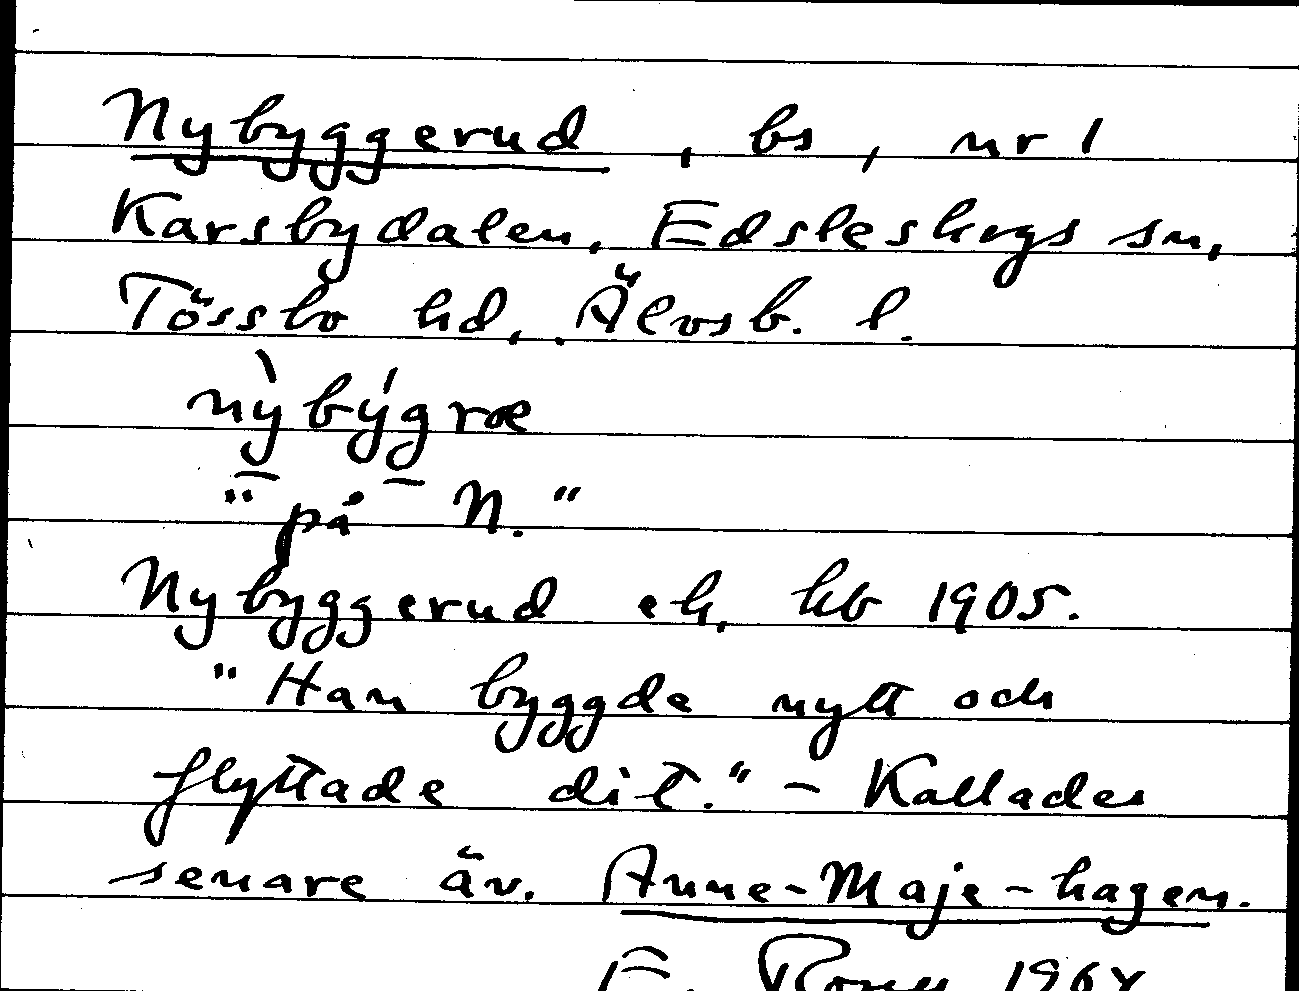 Nybyggerud, bs, nr 1
Karsbydalen, Edsleskogs sn,
Tössbo hd, Älvsb. l.
nỳbýgræ
"på N."
Nybyggerud ek, kb 1905.
"Han byggde nytt och
flyttade dit." - Kallades
senare äv. Anne-Maje-hagen.
E.